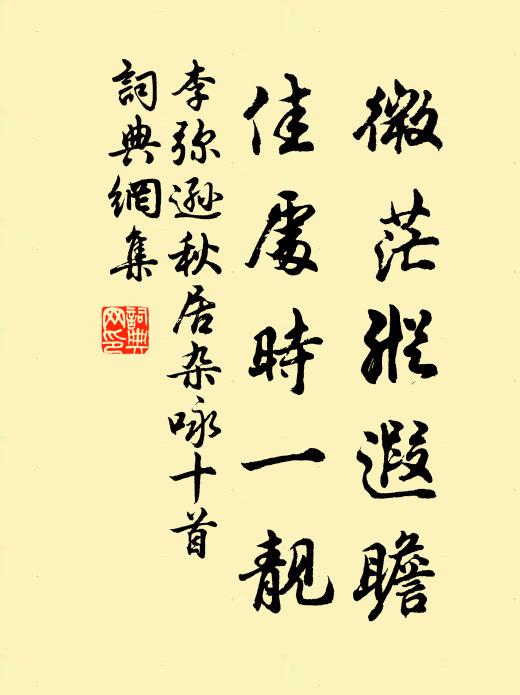 微茫縱遐瞻
佳處時一靚
李弥遜秋居杂咏十首
詞典網集
詞典
网印